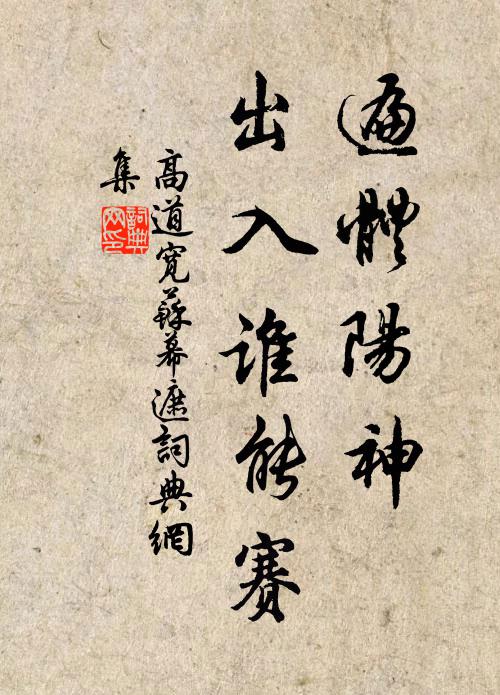 遍體陽神
出入誰能賽
高道寬蘇幕遮詞典網
集
詞典
网印